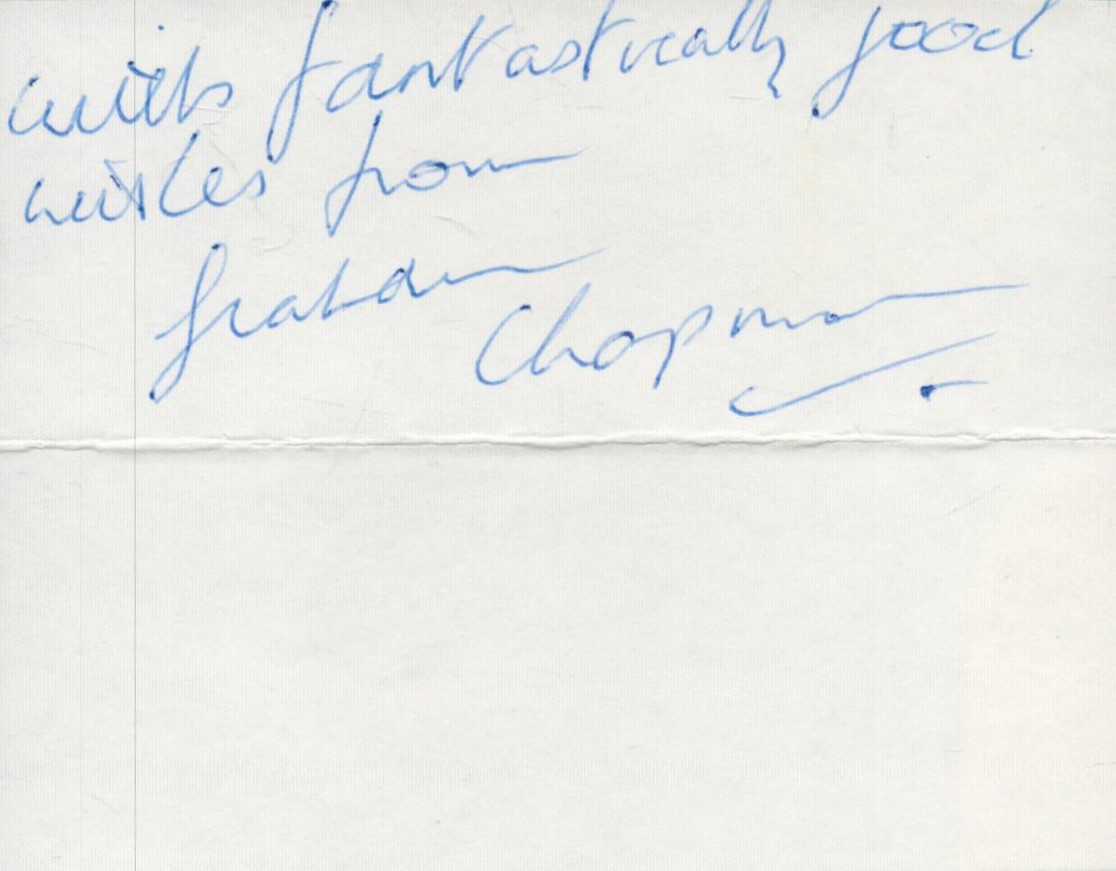 with fantastically good
wishes from
Graham
Chapman